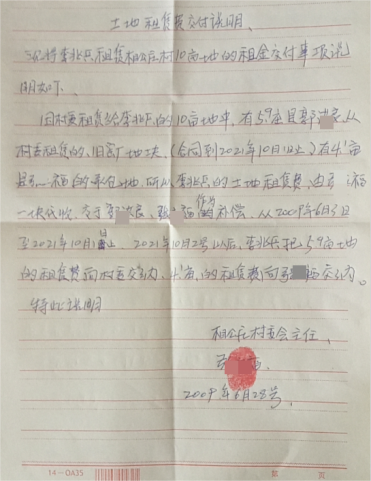 土地租赁费交付说明
现将李兆兵租赁相公庄村10亩土地的租金交付事项说
明如下、
因村委租赁给李兆兵的10亩地中，有5.9亩是郭 从
村委租赁的、旧窑厂地块、(合同到2021年10月1日止)有4.1亩
是 福的承包地，所以李兆兵的土地租赁费，由 福
一代收、 作为补偿、从2009年6月3日
至2021年10月1日止、2021年10月2号以后、李兆兵把5.9亩土地
的租赁费向村委交纳，4.1亩的租赁费向 福交纳。
特此说明
相公庄村委会主任、
2009年6月28号、
14-OA35